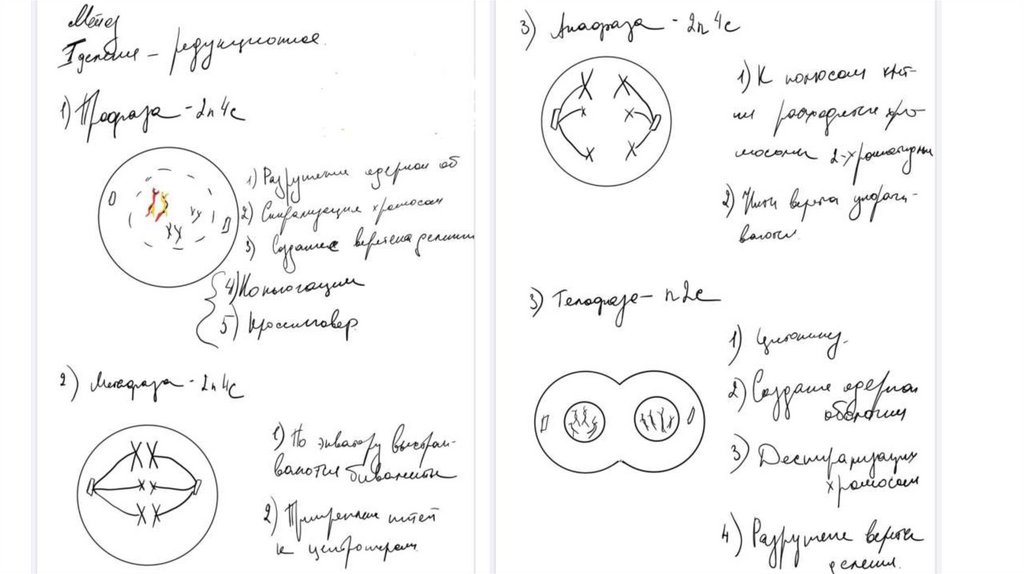 Мейоз
I деление – редукционное.
1) Профаза - 2n4c
1) Разрушение ядерной об
2) Спирализация хромосом
3) Создание веретена делени
4) Конъюгация
5) Кроссинговер
2) Метафаза - 2n4c
1) По экватору выстраи-
ваются биваленты
2) Прикрепление нитей
к центромерам
3) Анафаза - 2n4c
1) К полюсам клет-
ки расходятся хро-
мосомы 2-хроматидные
2) Нити веретена укорачи-
ваются.
3) Телофаза - n2c
1) Цитокинез.
2) Создание ядерной
оболочки
3) Деспирализация
хромосом
4) Разрушение веретена
деления.